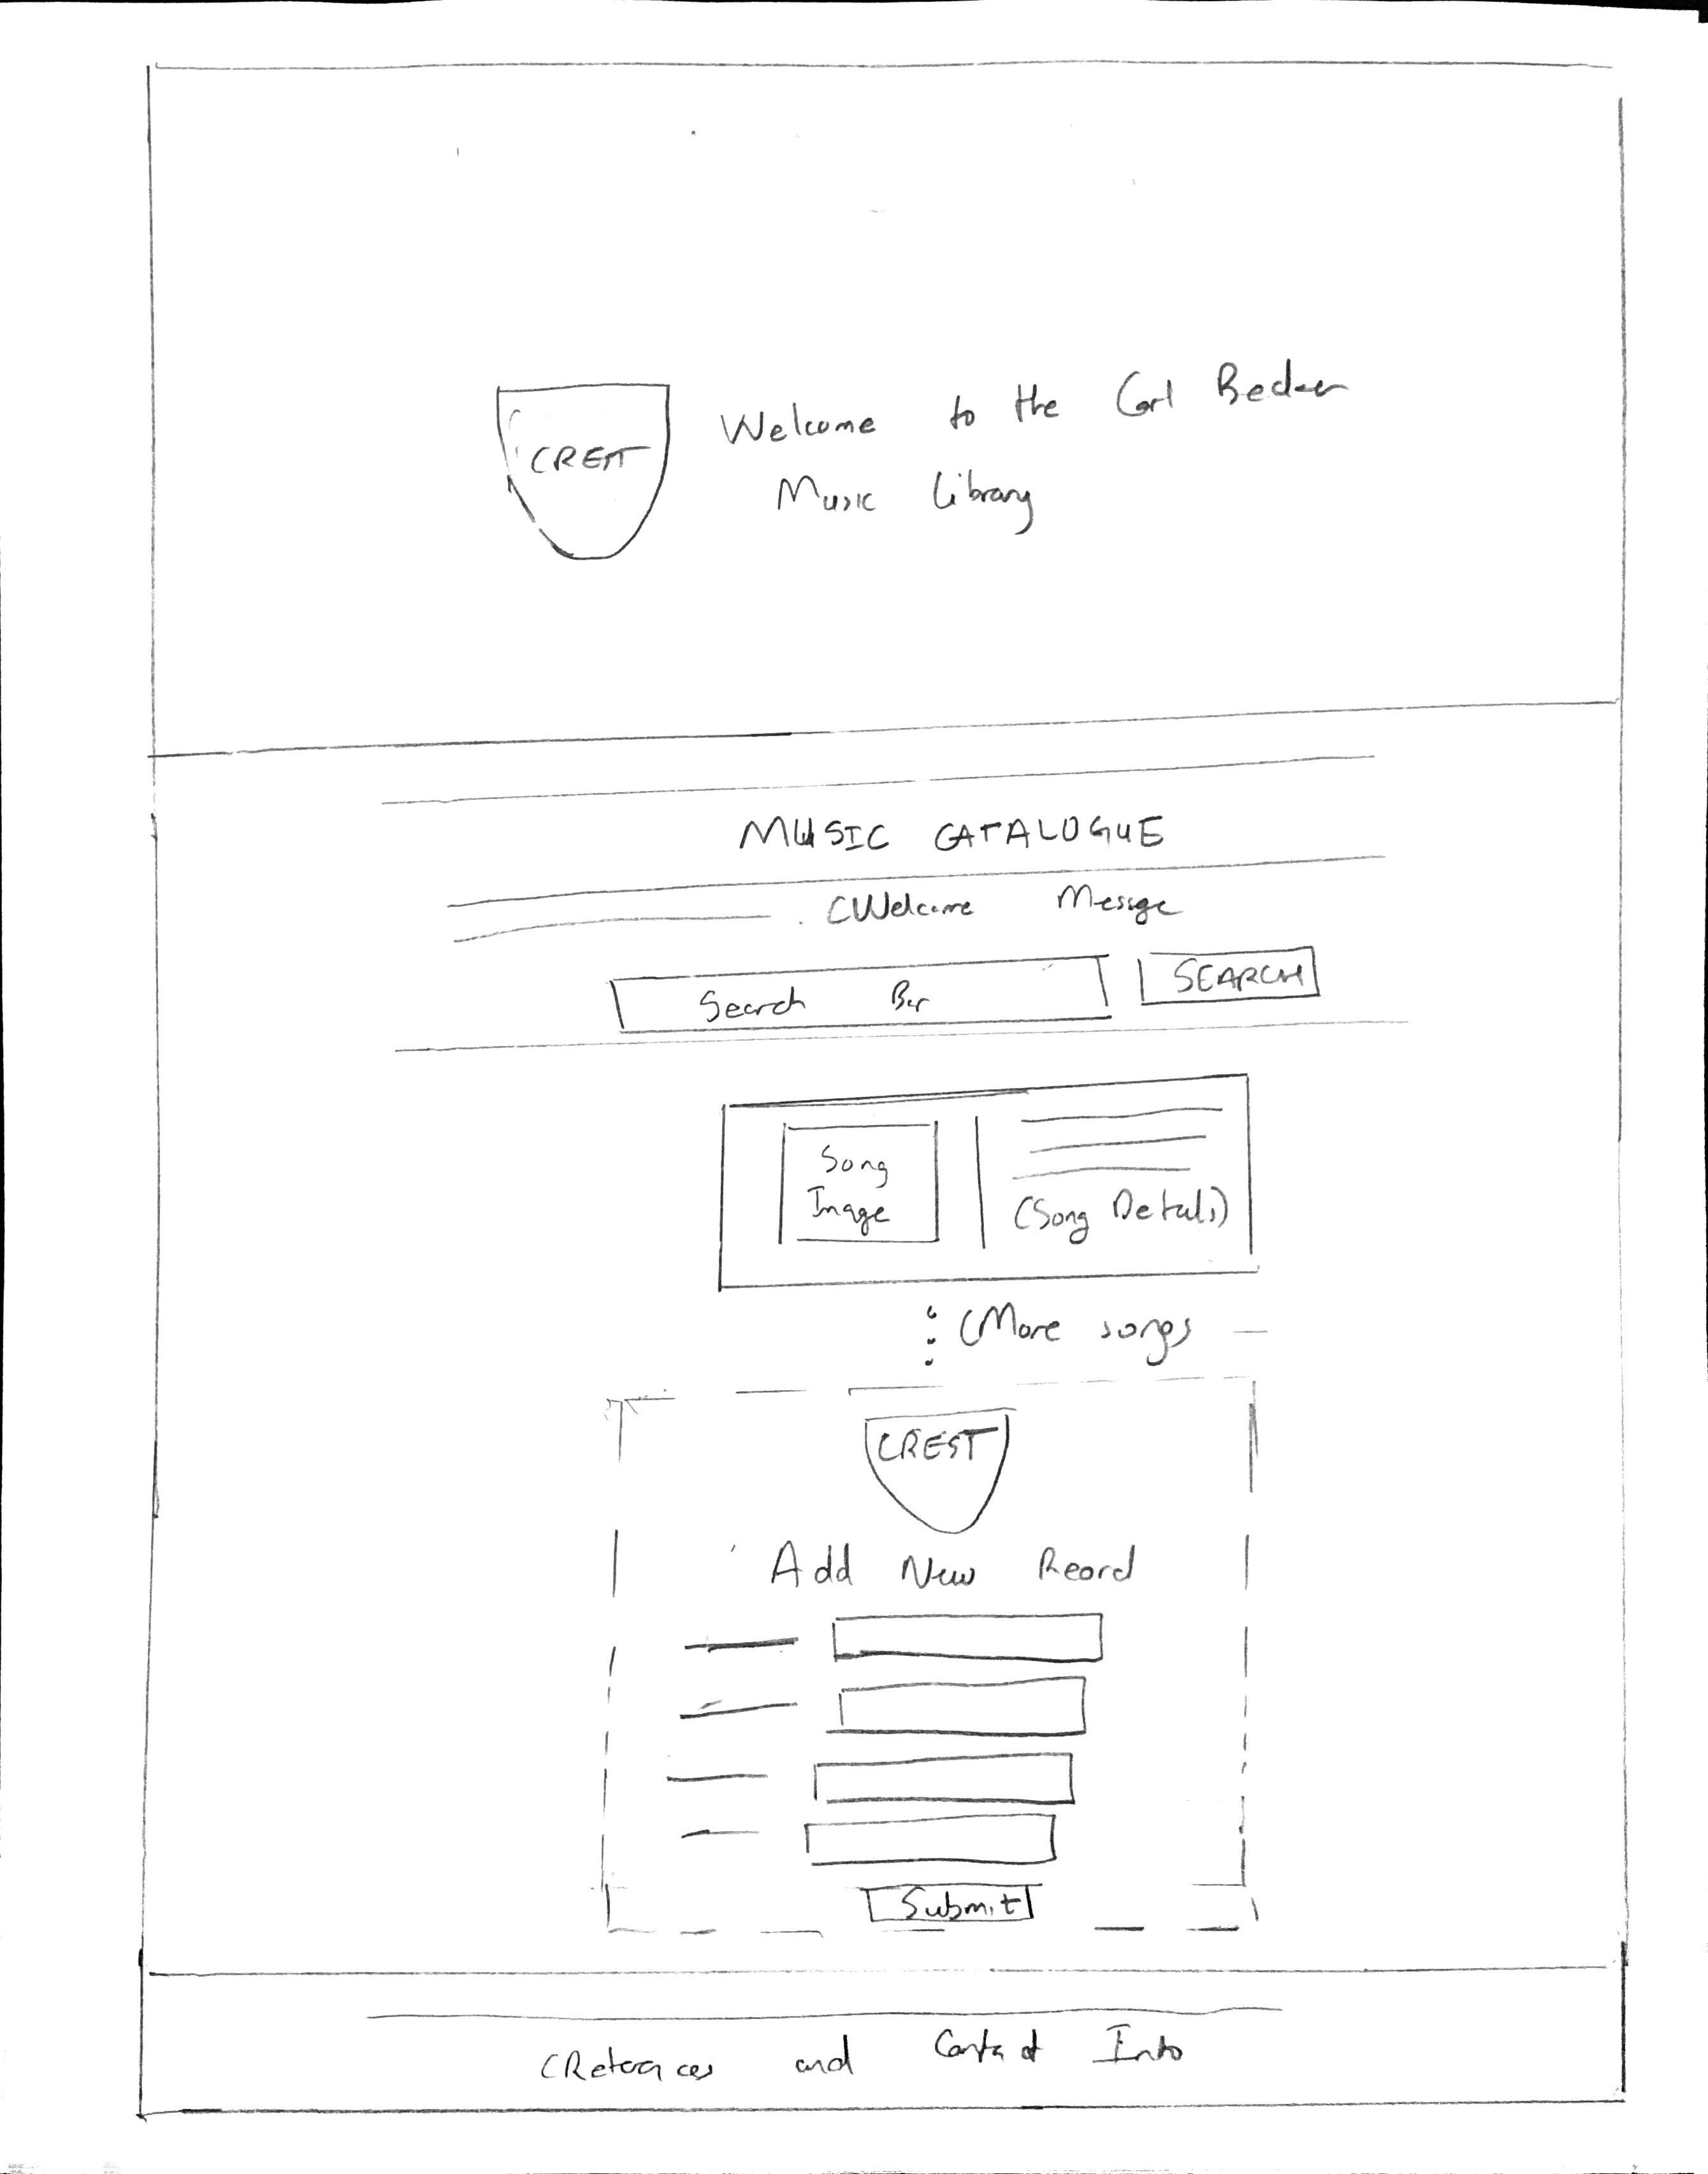 CREST
Welcome to the Carl Becker
Music Library
MUSIC CATALOGUE
(Welcome Message
Search Bar
SEARCH
Song
Image
(Song Details)
(More songs
CREST
Add New Reord
Submit
(References and Contact Info